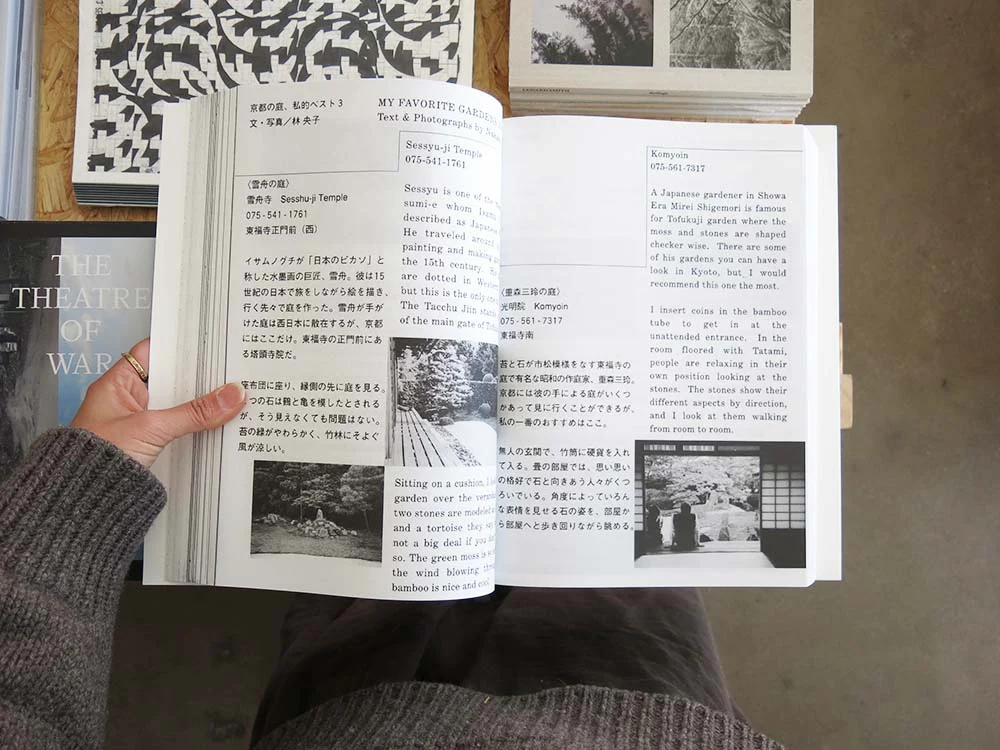 京都の庭、私的ベスト3
文・写真／林 央子
MY FAVORITE GARDENS
Text & Photographs by
Sessyu-ji Temple
075-541-1761
〈雪舟の庭〉
雪舟寺 Sesshu-ji Temple
075-541-1761
東福寺正門前（西）
イサムノグチが「日本のピカソ」と
称した水墨画の巨匠、雪舟。彼は15
世紀の日本で旅をしながら絵を描き、
行く先々で庭を作った。雪舟が手が
けた庭は西日本に散在するが、京都
にはここだけ。東福寺の正門前にあ
る塔頭寺院だ。
座布団に座り、縁側の先に庭を見る。
つの石は鶴と亀を模したとされる
が、そう見えなくても問題はない。
苔の緑がやわらかく、竹林にそよぐ
風が涼しい。
Sessyu is one of the
sumi-e whom Isamu
described as Japanese
He traveled around
painting and making
the 15th century.
are dotted in Western
but this is the only one
The Tacchu Jiin
of the main gate of
Sitting on a cushion, I
garden over the
two stones are modeled
and a tortoise they say
not a big deal if you
so. The green moss is
the wind blowing
bamboo is nice and cool
Komyoin
075-561-7317
A Japanese gardener in Showa
Era Mirei Shigemori is famous
for Tofukuji garden where the
moss and stones are shaped
checker wise. There are some
of his gardens you can have a
look in Kyoto, but I would
recommend this one the most.
I insert coins in the bamboo
tube to get in at the
unattended entrance. In the
room floored with Tatami,
people are relaxing in their
own position looking at the
stones. The stones show their
different aspects by direction,
and I look at them walking
from room to room.
〈重森三玲の庭〉
光明院 Komyoin
075-561-7317
東福寺南
苔と石が市松模様をなす東福寺の
庭で有名な昭和の作庭家、重森三玲。
京都には彼の手による庭がいくつ
かあって見に行くことができるが、
私の一番のおすすめはここ。
無人の玄関で、竹筒に硬貨を入れ
て入る。畳の部屋では、思い思い
の格好で石と向きあう人々がくつ
ろいでいる。角度によっていろん
な表情を見せる石の姿を、部屋か
ら部屋へと歩き回りながら眺める。
THE
THEATRE
OF
WAR